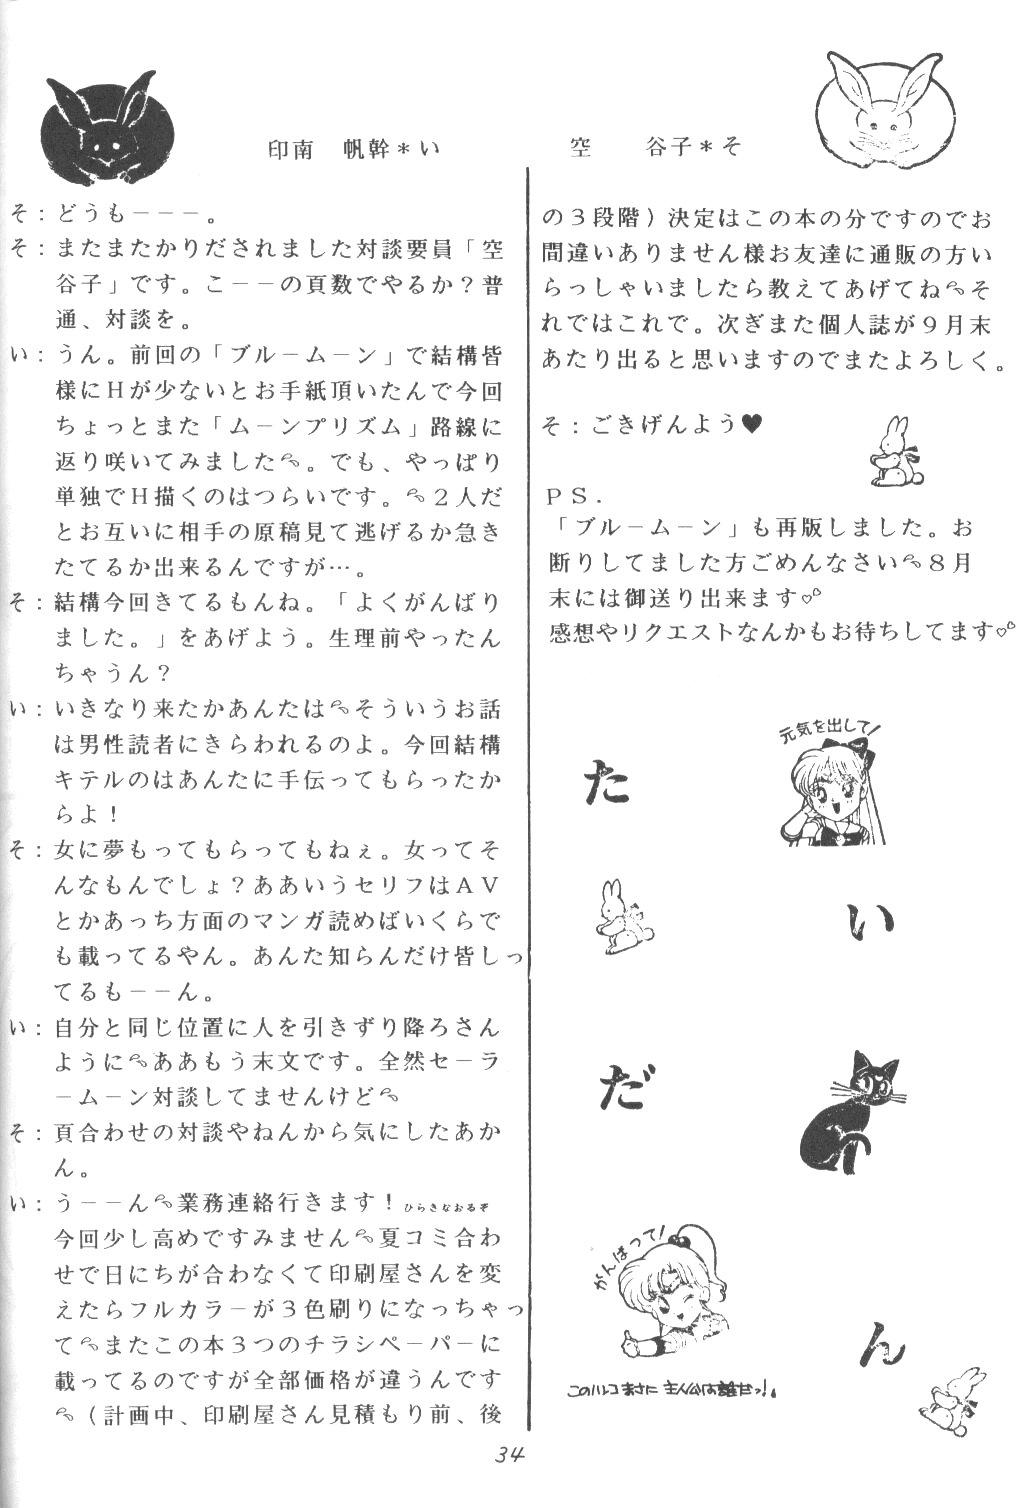 印南　帆幹＊い
空　　谷子＊そ
そ：どうもーーー。
そ：またまたかりだされました対談要員「空
谷子」です。こーーの頁数でやるか？普
通、対談を。
い：うん。前回の「ブルームーン」で結構皆
様にＨが少ないとお手紙頂いたんで今回
ちょっとまた「ムーンプリズム」路線に
返り咲いてみました。でも、やっぱり
単独でＨ描くのはつらいです。２人だ
とお互いに相手の原稿見て逃げるか急き
たてるか出来るんですが…。
そ：結構今回きてるもんね。「よくがんばり
ました。」をあげよう。生理前やったん
ちゃうん？
い：いきなり来たかあんたはそういうお話
は男性読者にきらわれるのよ。今回結構
キテルのはあんたに手伝ってもらったか
らよ！
そ：女に夢もってもらってもねぇ。女ってそ
んなもんでしょ？ああいうセリフはＡＶ
とかあっち方面のマンガ読めばいくらで
も載ってるやん。あんた知らんだけ皆しっ
てるもーーん。
い：自分と同じ位置に人を引きずり降ろさん
ようにああもう末文です。全然セーラ
ームーン対談してませんけど
そ：頁合わせの対談やねんから気にしたあか
ん。
い：うーーん業務連絡行きます！ひらきなおるぞ
今回少し高めですみません夏コミ合わ
せで日にちが合わなくて印刷屋さんを変
えたらフルカラーが３色刷りになっちゃっ
てまたこの本３つのチラシペーパーに
載ってるのですが全部価格が違うんです
（計画中、印刷屋さん見積もり前、後
の３段階）決定はこの本の分ですのでお
間違いありません様お友達に通販の方い
らっしゃいましたら教えてあげてねそ
れではこれで。次ぎまた個人誌が９月末
あたり出ると思いますのでまたよろしく。
そ：ごきげんよう♥
ＰＳ．
「ブルームーン」も再版しました。お
断りしてました方ごめんなさい８月
末には御送り出来ます♡
感想やリクエストなんかもお待ちしてます♡
元気を出して！
た
い
だ
がんばって！
ん
このハンコまさに主人公は誰だっ！。
34